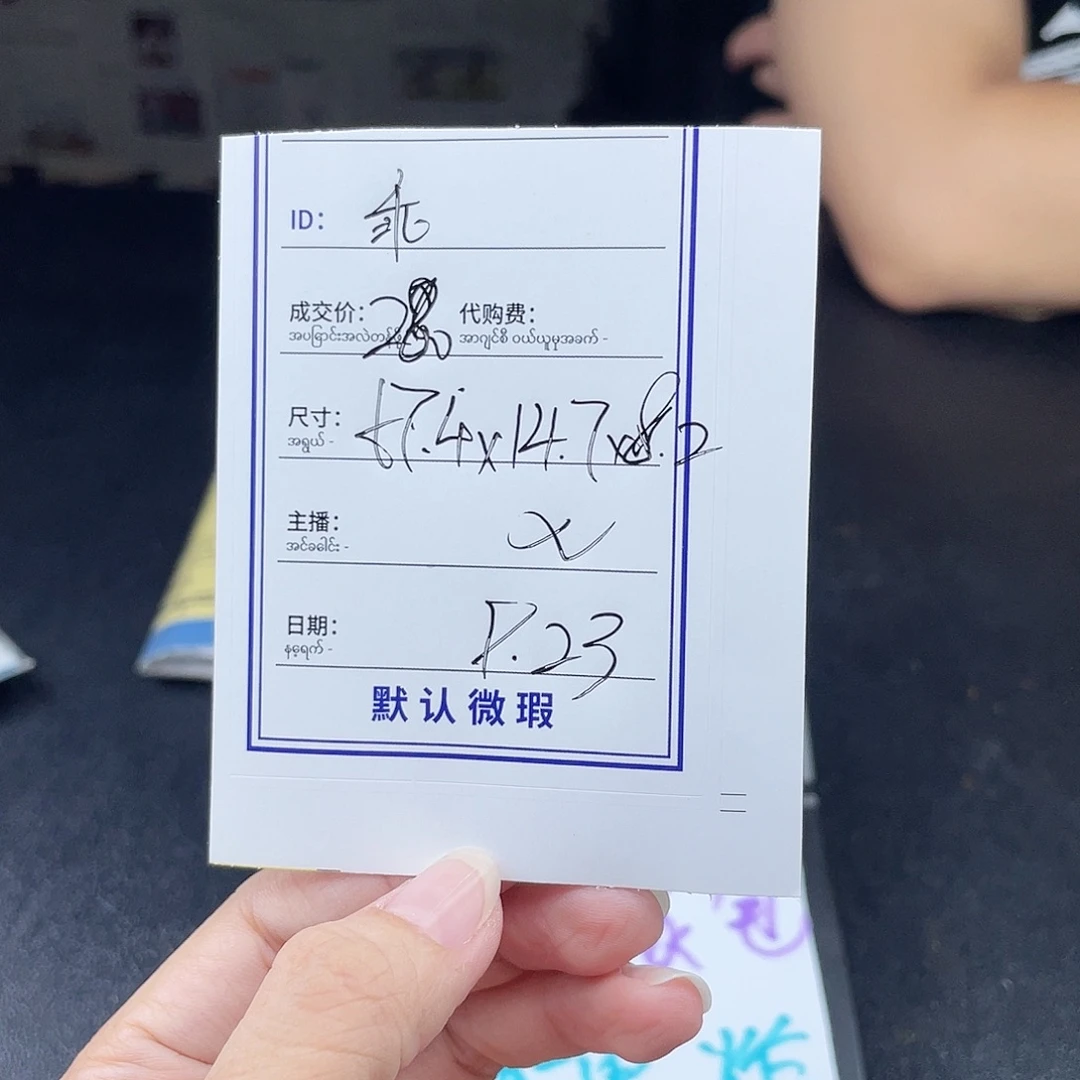 ID: 乖
成交价: 28 代购费:
အပြောင်းအလဲတန်ဖိုး အာဂျင်စီ ဝယ်ယူမှုအခက် -
尺寸: 57.4x14.7x8.2
အရွယ် -
主播: X
အင်ခေါင်း -
日期: 5.23
နေ့ရက် -
默认微瑕